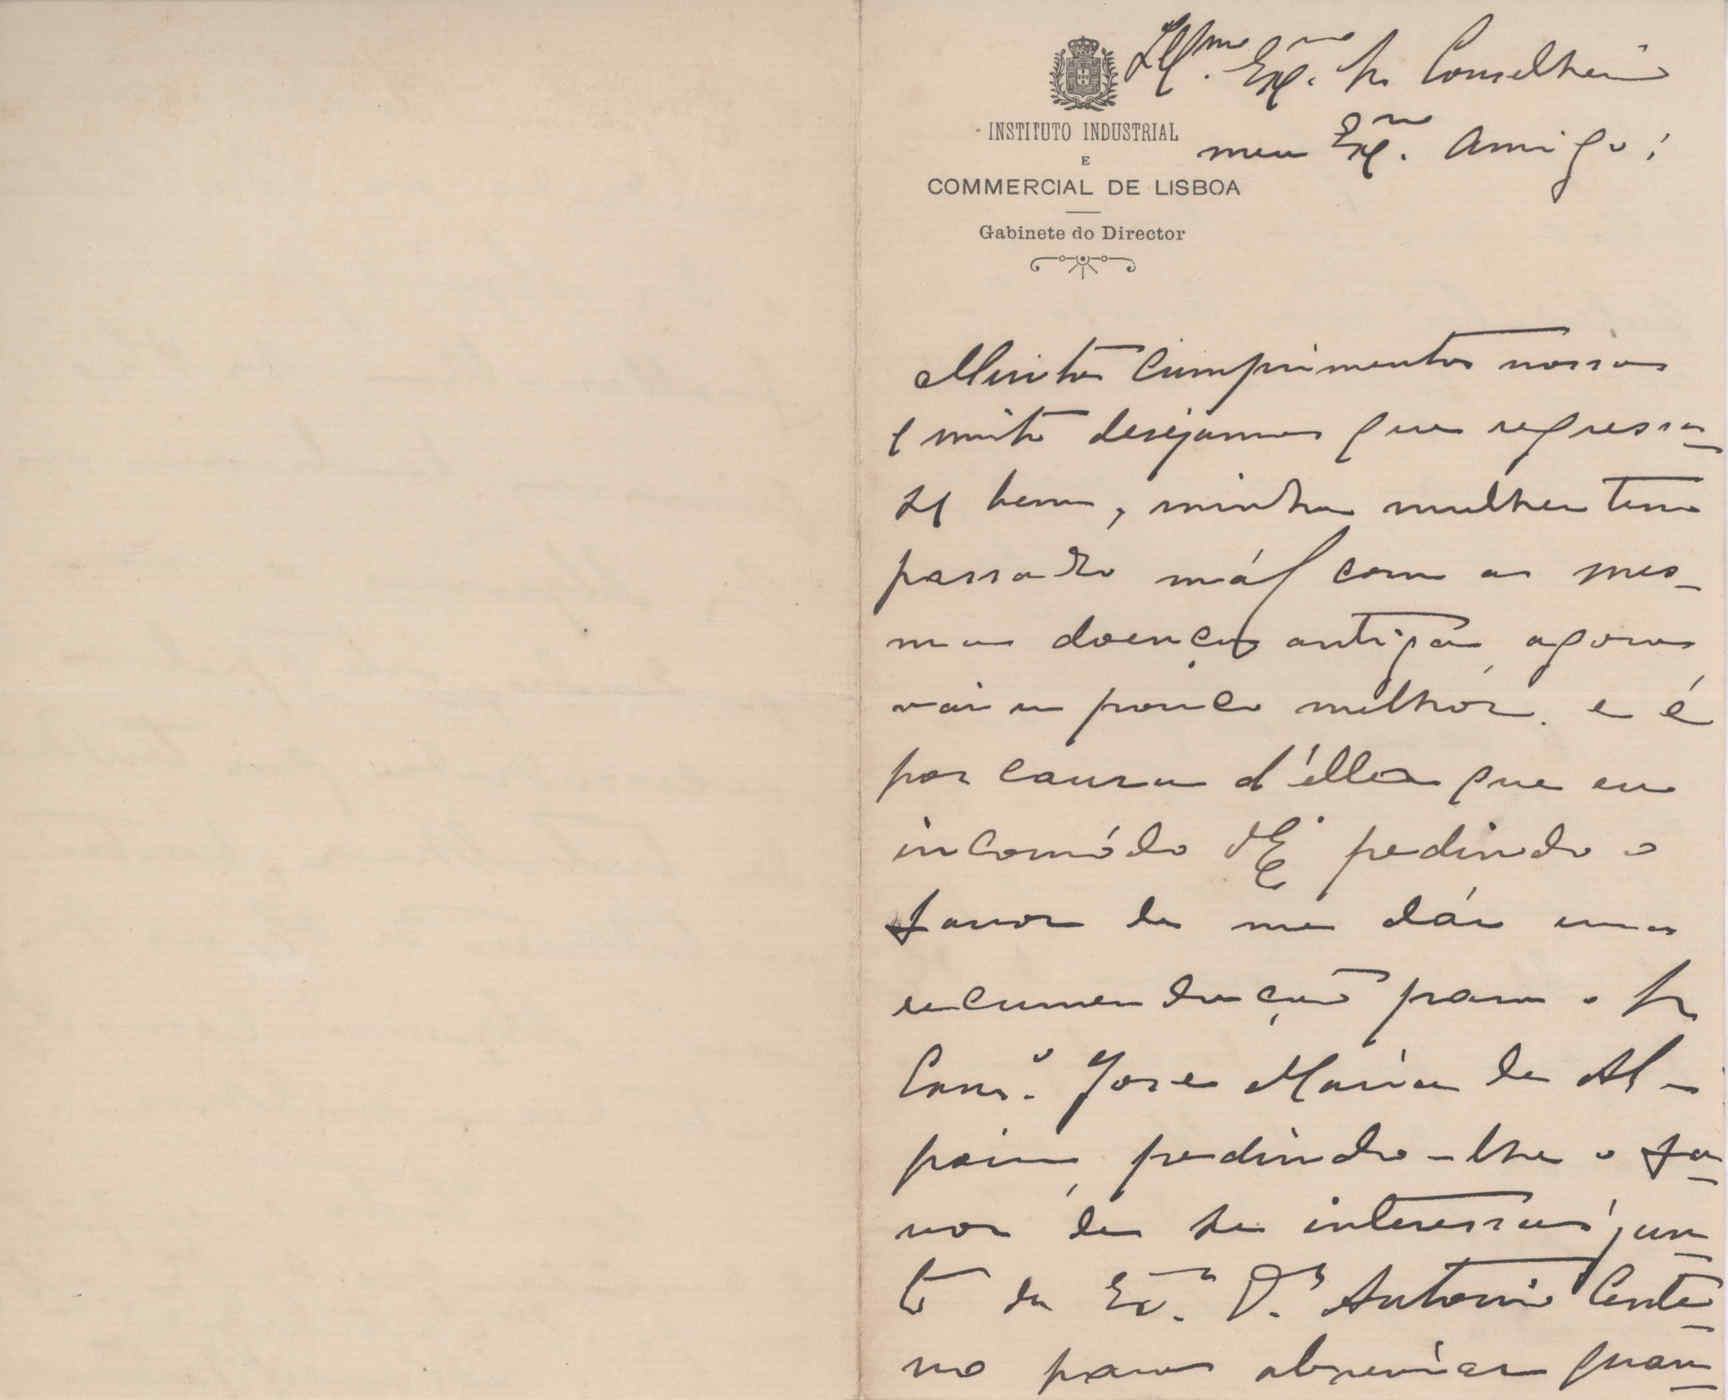 INSTITUTO INDUSTRIAL
E
COMMERCIAL DE LISBOA
Gabinete do Director
Illmo. Exmo. Sr Conselheiro
meu Exmo. Amigo;
Muitos cumprimentos nossos
e muito desejamos que regressas-
se bem, minha mulher tem
passado mál com as mes-
mas doenças antigas, agora
vai um pouco melhór. e é
por causa d'élla que eu
incomódo VE pedindo o
favor de me dár uma
recumendação para o Sr
Conso. Jose Maria de Al-
poim, pedindo-lhe o fa-
vor de se interessar jun-
to do Exmo. Dr. Antonio Cente-
no para abreviar quan-